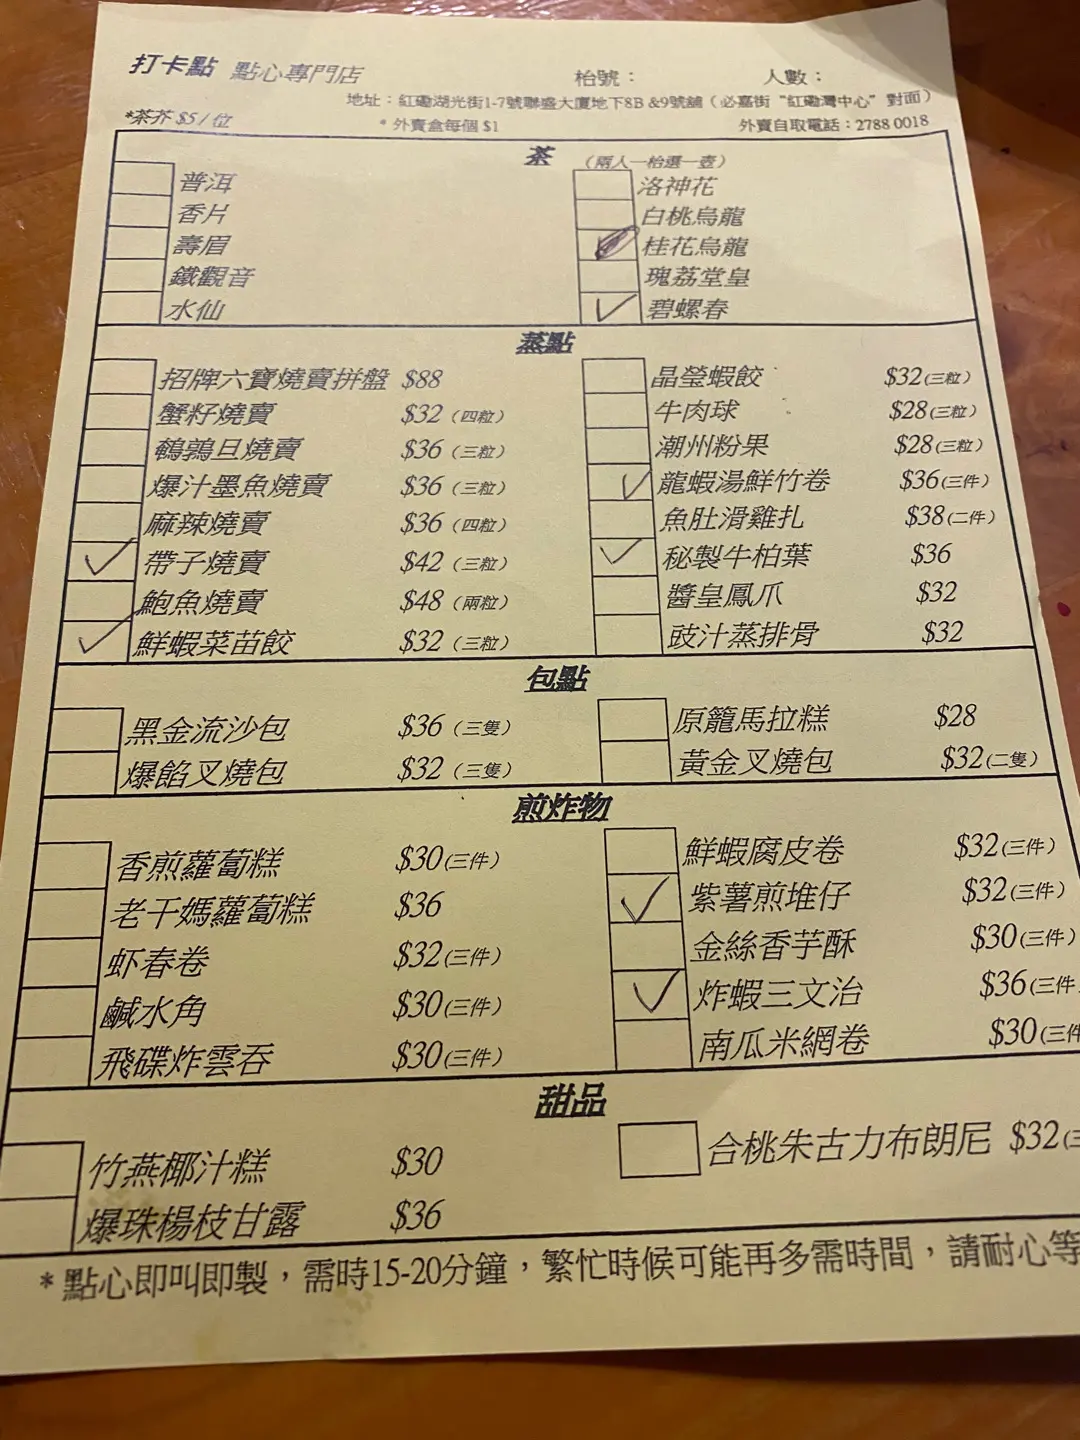 打卡點 點心專門店 枱號： 人數：
地址：紅磡湖光街1-7號聯盛大廈地下8B &9號舖（必嘉街“紅磡灣中心”對面）
*茶芥 $5 / 位 * 外賣盒每個 $1 外賣自取電話：2788 0018
茶 （兩人一枱選一壺）
普洱 洛神花
香片 白桃烏龍
壽眉 桂花烏龍
鐵觀音 瑰荔堂皇
水仙 碧螺春
蒸點
招牌六寶燒賣拼盤 $88 晶瑩蝦餃 $32(三粒)
蟹籽燒賣 $32（四粒） 牛肉球 $28(三粒)
鵪鶉旦燒賣 $36（三粒） 潮州粉果 $28(三粒)
爆汁墨魚燒賣 $36（三粒） 龍蝦湯鮮竹卷 $36(三件)
麻辣燒賣 $36（四粒） 魚肚滑雞扎 $38(二件)
帶子燒賣 $42（三粒） 秘製牛柏葉 $36
鮑魚燒賣 $48（兩粒） 醬皇鳳爪 $32
鮮蝦菜苗餃 $32（三粒） 豉汁蒸排骨 $32
包點
黑金流沙包 $36（三隻） 原籠馬拉糕 $28
爆餡叉燒包 $32（三隻） 黃金叉燒包 $32(二隻)
煎炸物
香煎蘿蔔糕 $30(三件) 鮮蝦腐皮卷 $32(三件)
老干媽蘿蔔糕 $36 紫薯煎堆仔 $32(三件)
虾春卷 $32(三件) 金絲香芋酥 $30(三件)
鹹水角 $30(三件) 炸蝦三文治 $36(三件
飛碟炸雲吞 $30(三件) 南瓜米網卷 $30(三件
甜品
竹燕椰汁糕 $30 合桃朱古力布朗尼 $32(三
爆珠楊枝甘露 $36
* 點心即叫即製，需時15-20分鐘，繁忙時候可能再多需時間，請耐心等